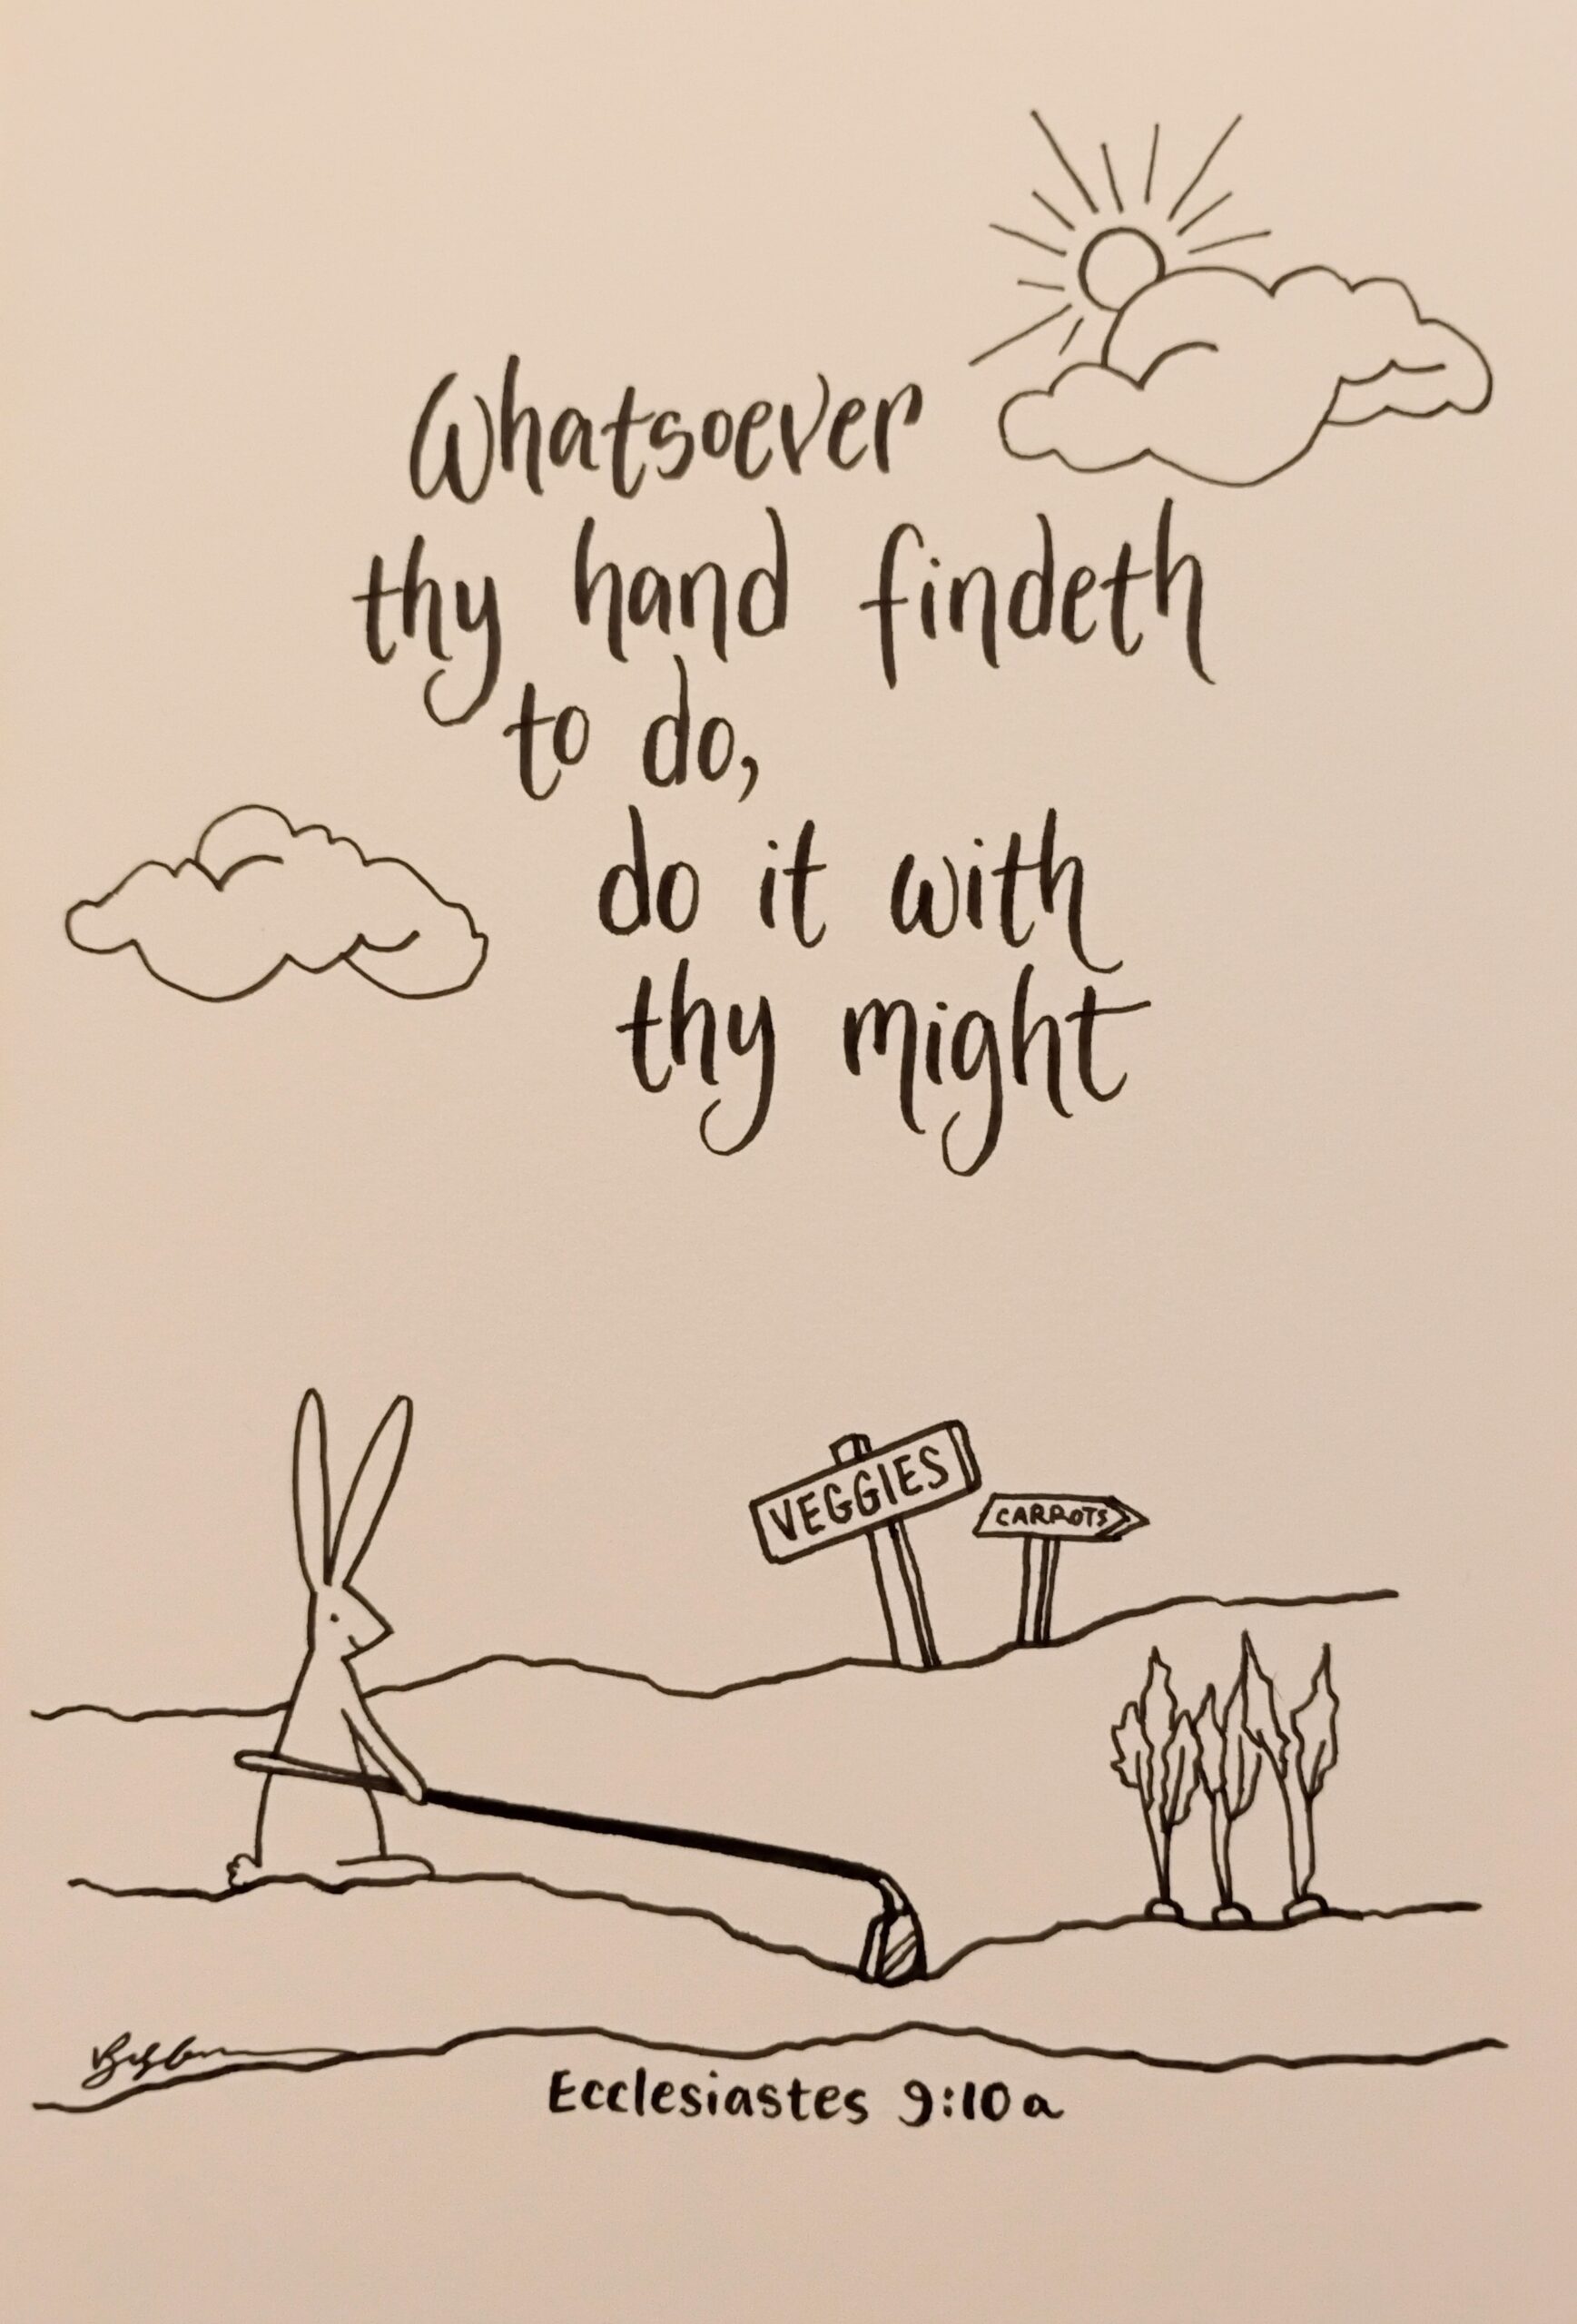 Whatsoever
thy hand findeth
to do,
do it with
thy might
VEGGIES
CARROTS
Ecclesiastes 9:10a